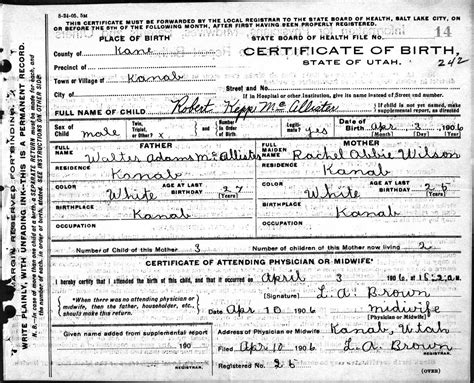 5-24-05, 5M
THIS CERTIFICATE MUST BE FORWARDED BY THE LOCAL REGISTRAR TO THE STATE BOARD OF HEALTH, SALT LAKE CITY, ON
OR BEFORE THE 5TH OF THE FOLLOWING MONTH, AFTER FIRST HAVING BEEN PROPERLY REGISTERED.
PLACE OF BIRTH
STATE BOARD OF HEALTH FILE NO. 14
County of Kane
CERTIFICATE OF BIRTH,
Precinct of Kanab
STATE OF UTAH. 242
Town or Village of Kanab
City of No. Street
If in Hospital or other Institution, give its name instead of Street and number.
FULL NAME OF CHILD Robert Kepp McAllister
If child is not yet named, make supplemental report, as directed.
Sex of Child male Twin, Triplet, or Other? and Number in Order of Birth Legitimate? yes Date of Birth Apr 3 1906
(Month) (Day) (Year)
FATHER
MOTHER
FULL NAME Walter Adams McAllister
FULL MAIDEN NAME Rachel Abbie Wilson
RESIDENCE Kanab
RESIDENCE Kanab
COLOR White AGE AT LAST BIRTHDAY 27
COLOR White AGE AT LAST BIRTHDAY 25
BIRTHPLACE Kanab
BIRTHPLACE Kanab
OCCUPATION
OCCUPATION
Number of Child of this Mother 3
Number of children of this Mother now living 2
CERTIFICATE OF ATTENDING PHYSICIAN OR MIDWIFE*
I hereby certify that I attended the birth of this child, and that it occurred on April 3 1906, at
*When there was no attending physician or midwife, then the father, householder, etc., should make this return.
(Signature) L.A. Brown
Date Apr 10 1906 midwife
(Physician or Midwife)
Given name added from supplemental report
190
Address of Physician or Midwife Kanab, Utah
Filed Apr 10 1906 L.A. Brown
Registered No. 25
(OVER)
MARGIN RESERVED FOR BINDING.
WRITE PLAINLY, WITH UNFADING INK—THIS IS A PERMANENT RECORD.